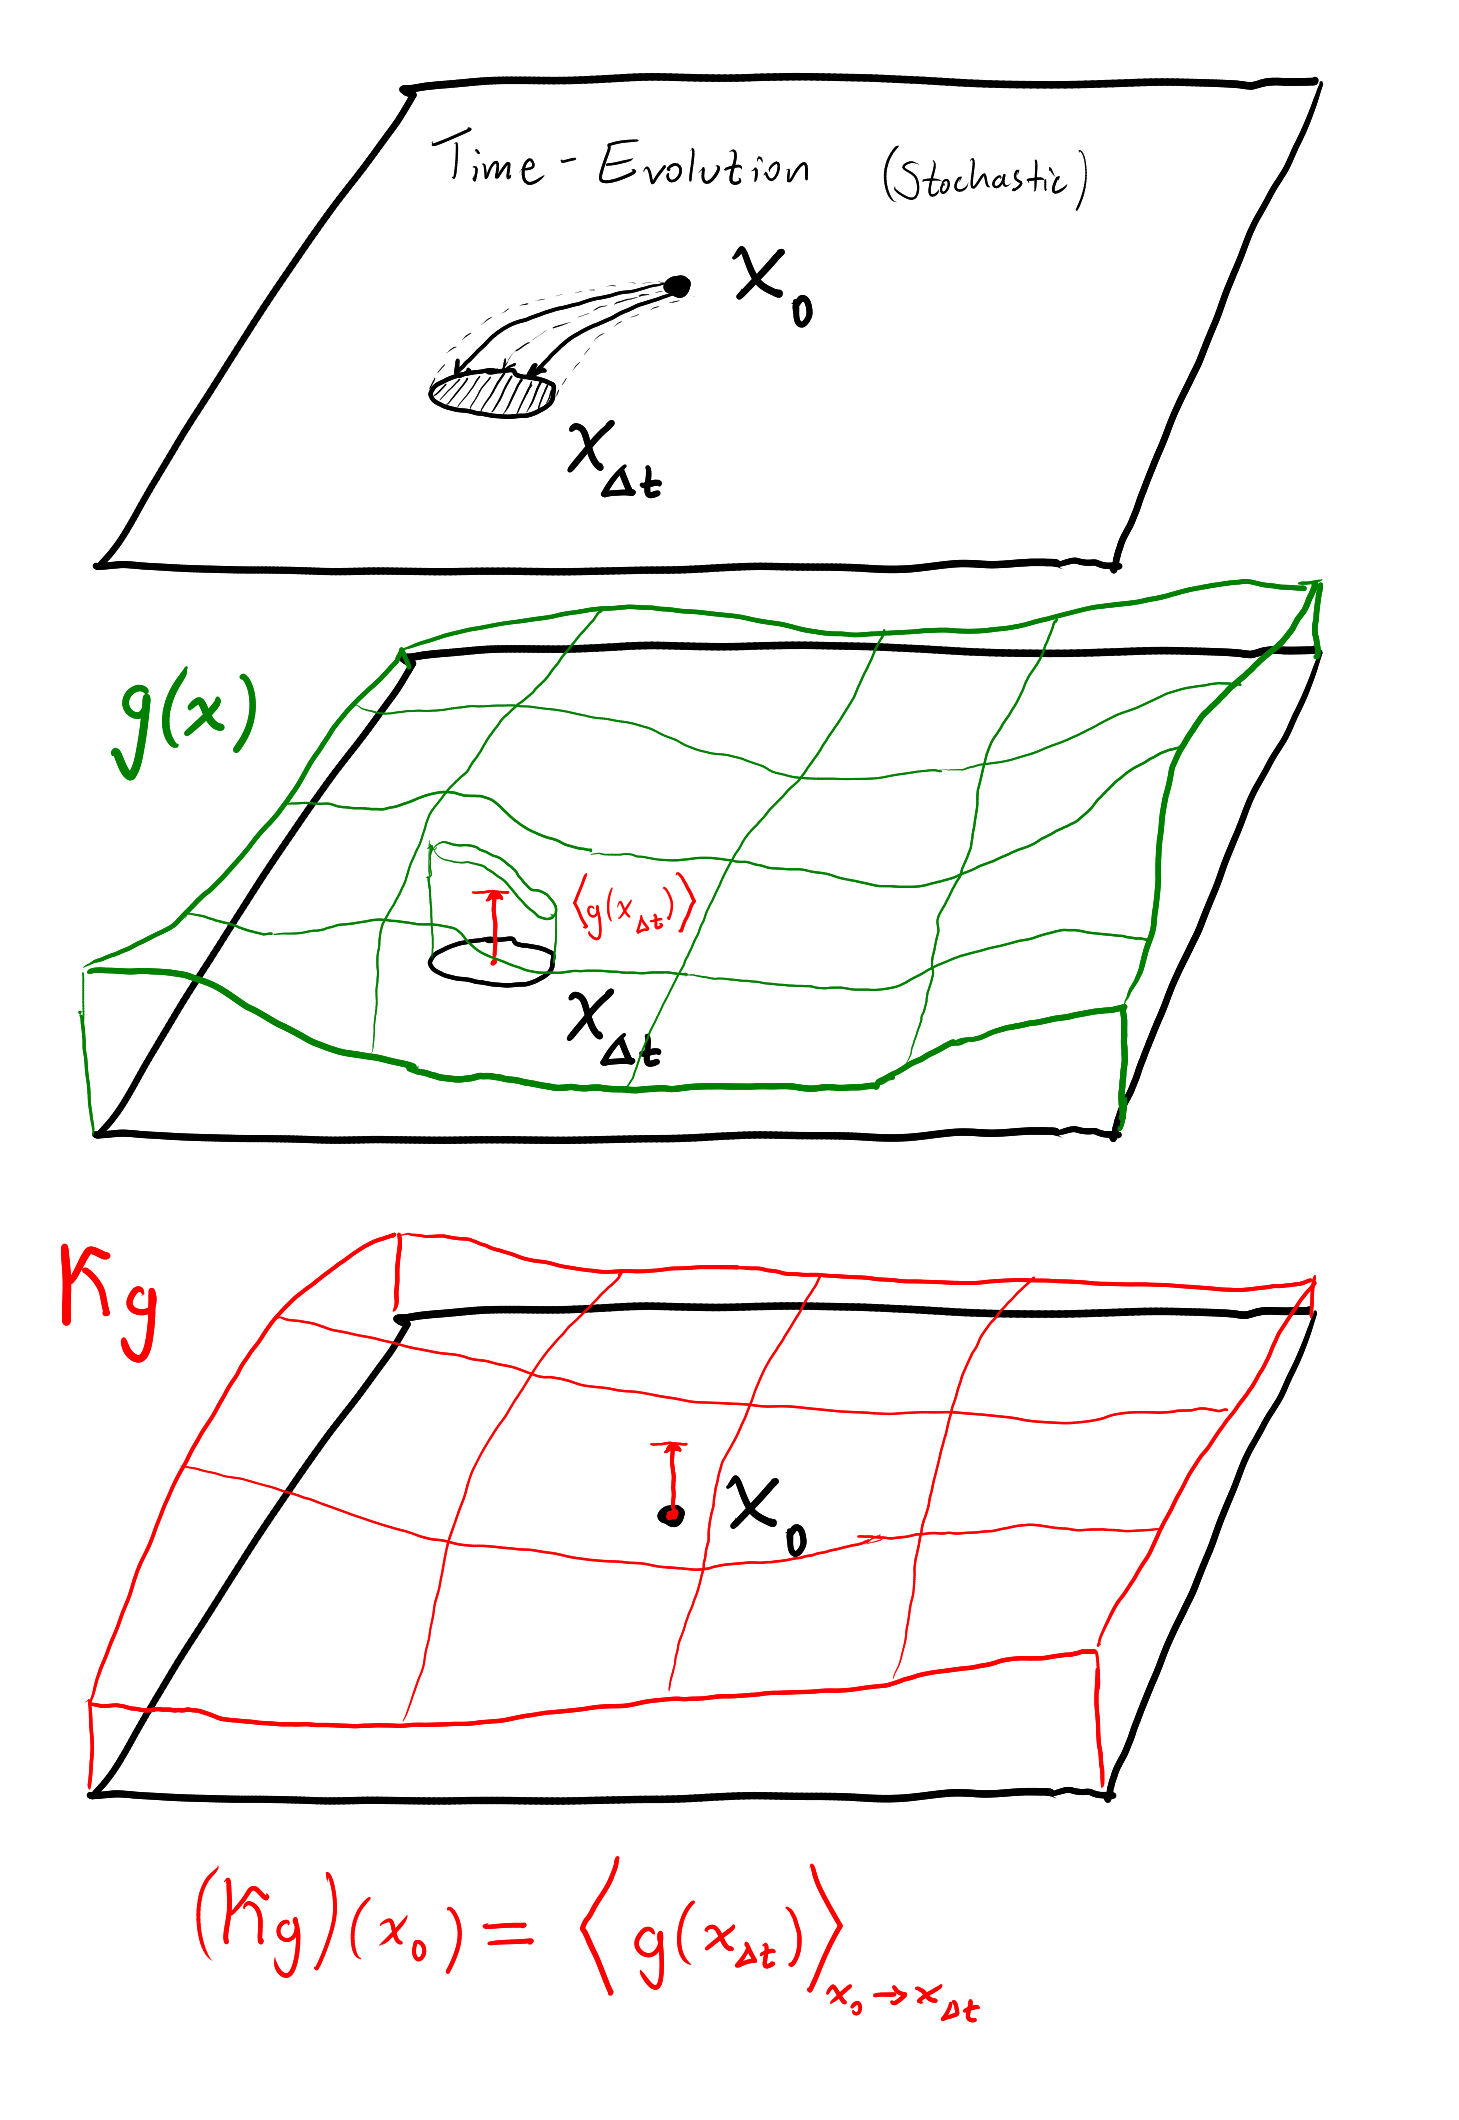 Time-Evolution (Stochastic)
x₀
x_Δt
g(x)
⟨g(x_Δt)⟩
x_Δt
Kg
x₀
(Kg)(x₀) = ⟨g(x_Δt)⟩_x₀→x_Δt